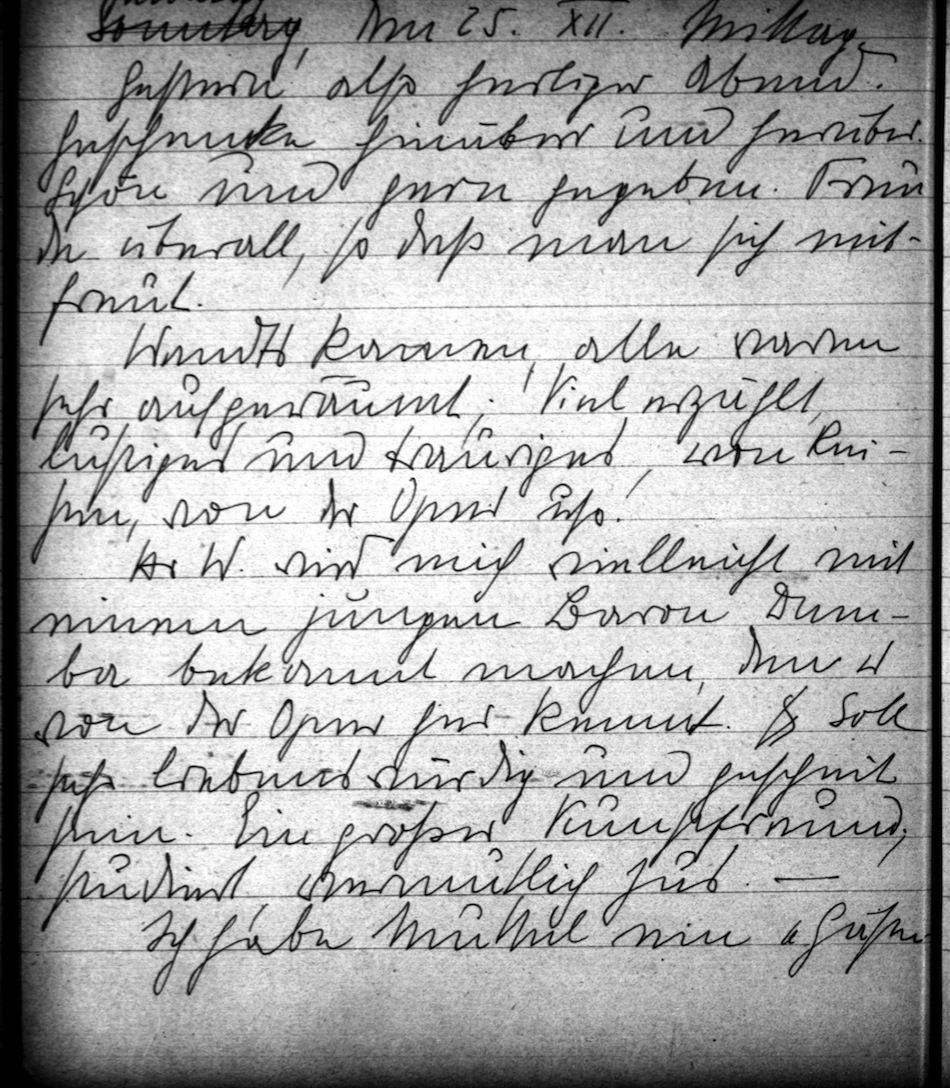 Sonntag, den 25. XII. Mittag.
Gestern also heiliger Abend.
Geschenke hinüber und herüber.
Schön und gern gegeben. Freu
de überall, so daß man sich mit-
freut.
Wendts kamen, alle waren
sehr aufgeräumt. Viel erzählt,
lustiges und trauriges, von Rei-
sen, von der Oper usf.
Hr W. wird mich vielleicht mit
einem jungen Baron Dum-
ba bekannt machen, den er
von der Oper her kennt. Soll
sehr liebenswürdig und gescheit
sein. Ein großer Kunstfreund,
studiert vermutlich Jus. —
Ich habe Muttel ein